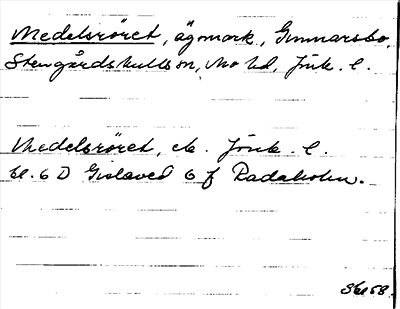 Medelsröret, ägomark, Gunnarsbo,
Stengårdshults sn, Mo hd, Jönk. l.
Medelsröret, ek. Jönk. l.
bl. 6 D Gislaved 6 f Radaholm.
Skl 58.